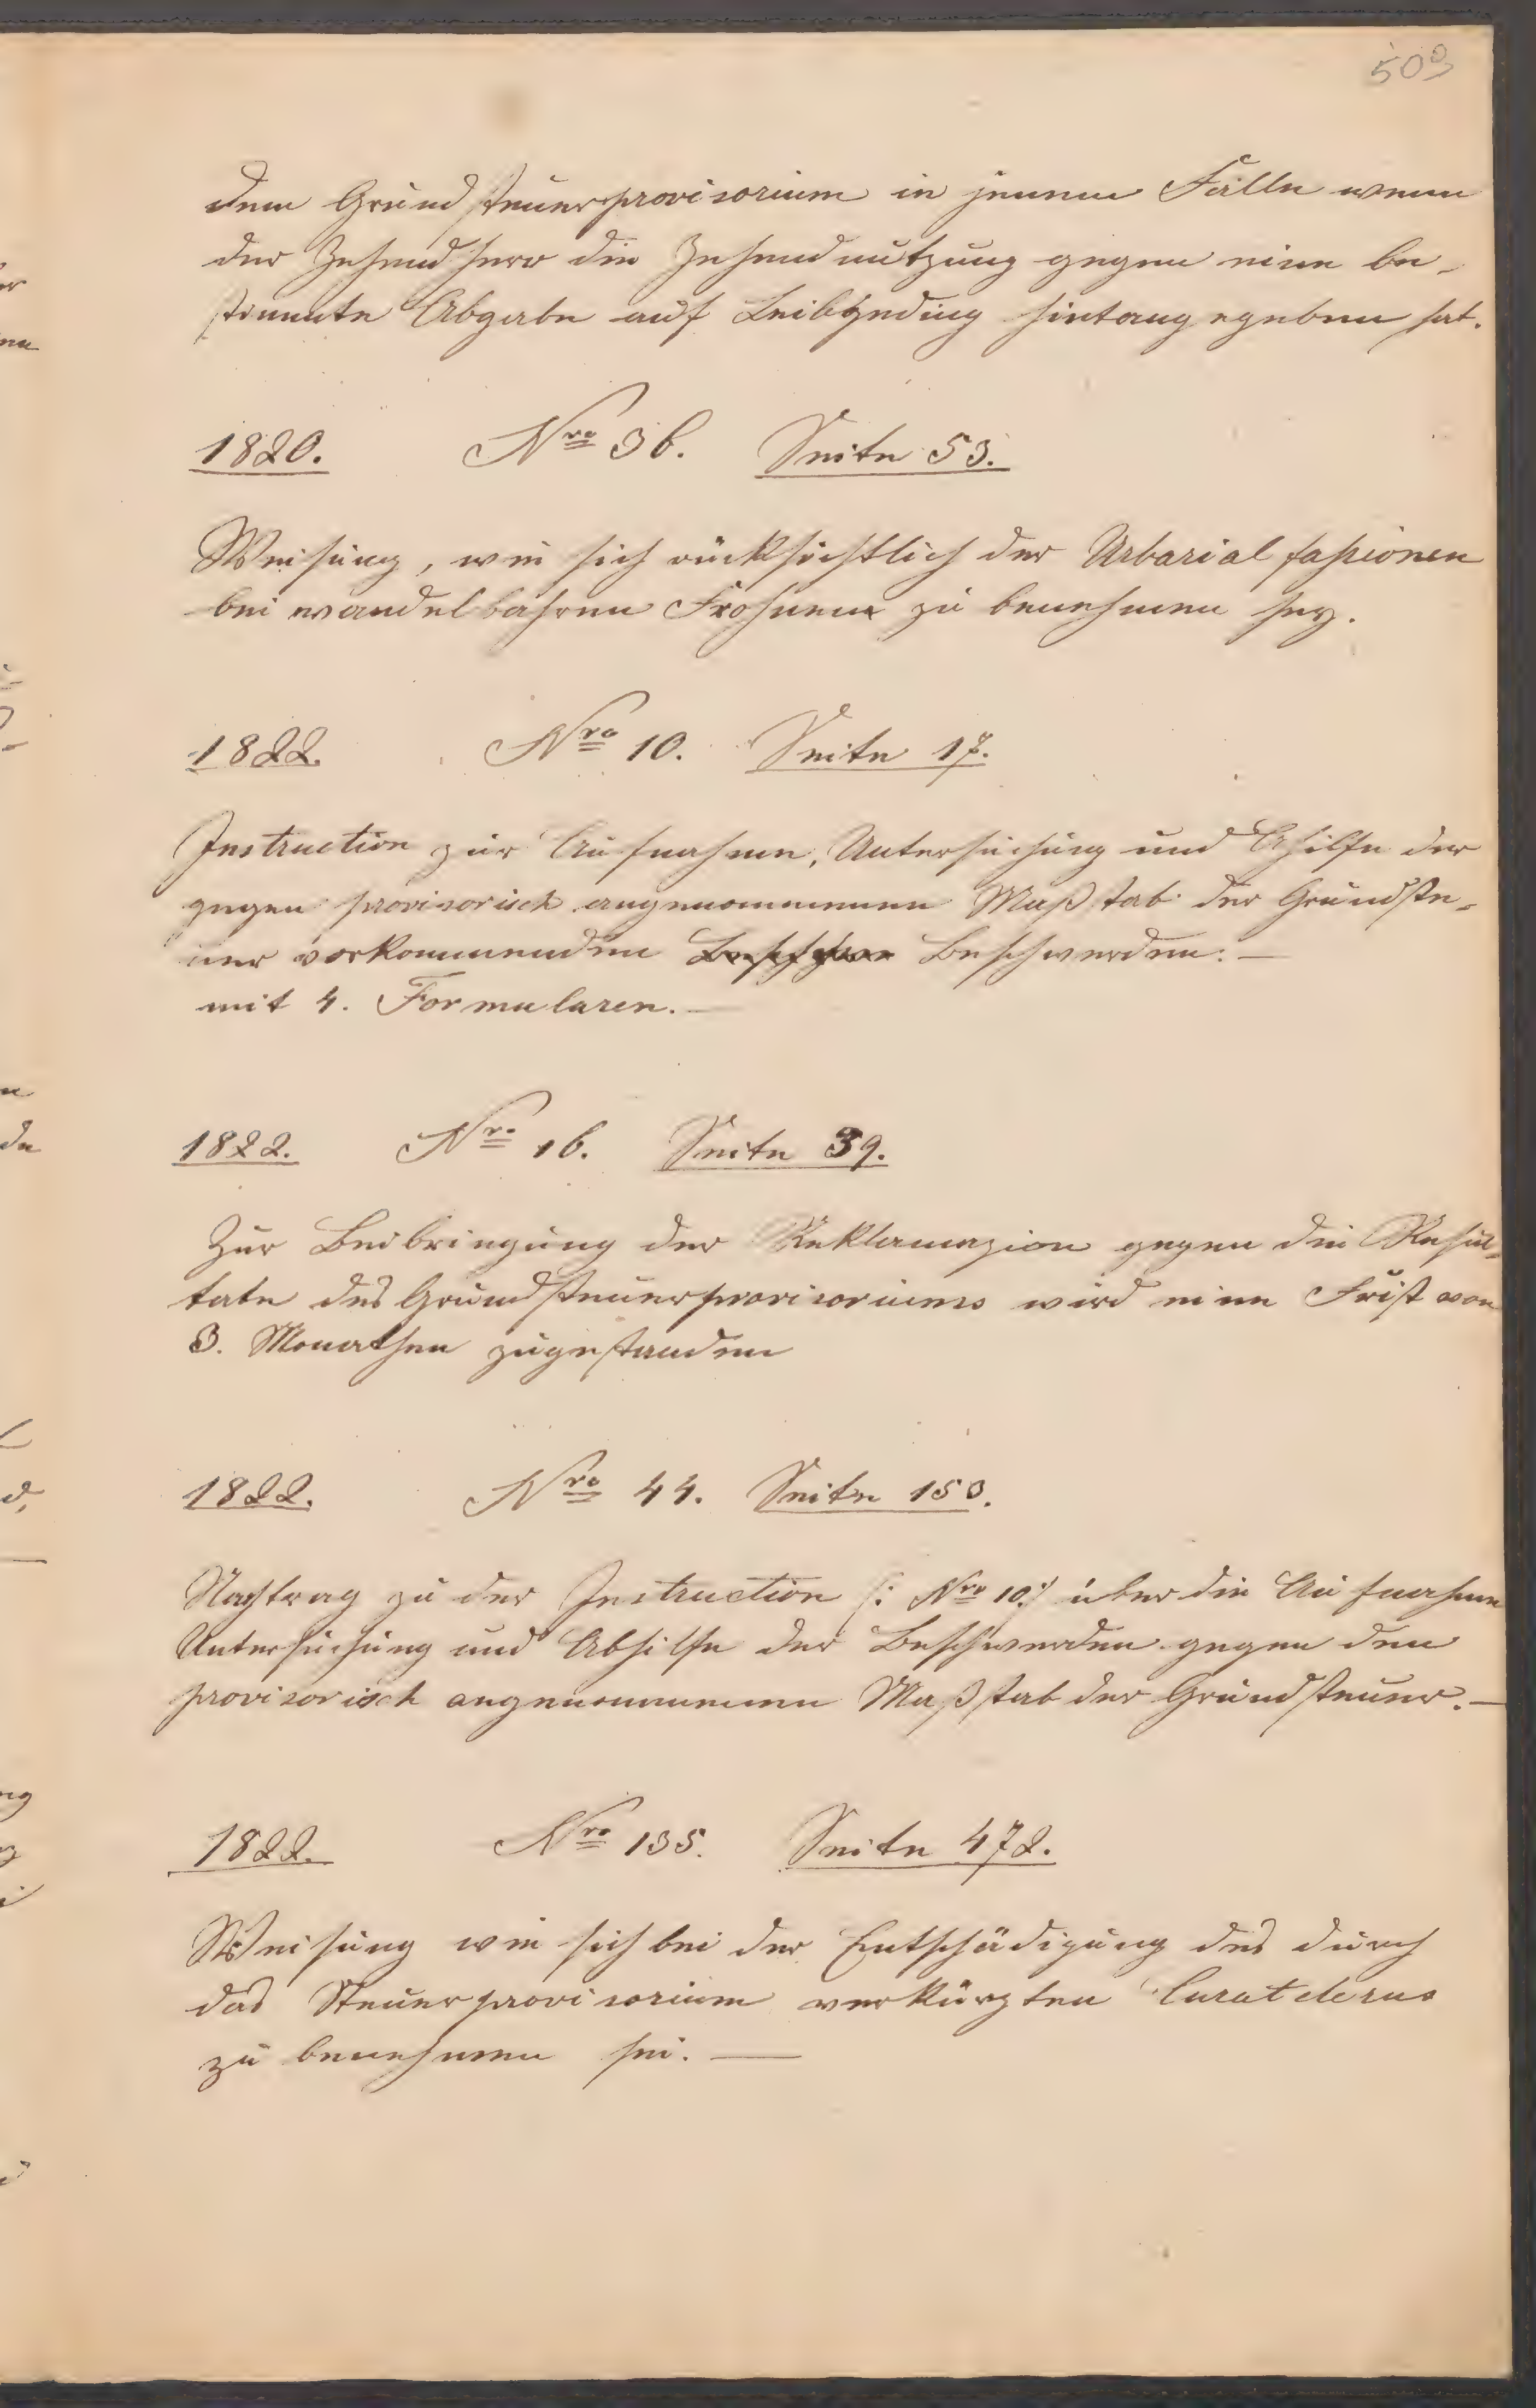 503
dem Grundsteuerprovisorium in jenem Falle wenn
der Zehendherr die Zehendnutzung gegen eine be-
stimmte Abgabe auf Leibgeding hintangegeben hat.
1820. Nro 36. Seite 53.
Weisung, wie sich rücksichtlich der Urbarialfassionen
bei wandelbahren Frohnen zu benehmen sey.
1822. Nro 10. Seite 17.
Instruction zur Aufnahme, Untersuchung und Abhilfe der
gegen provisorisch angenommenen Maßstab der Grundste-
uer vorkommenden Beschwerden. —
mit 4. Formularen. —
1822. Nro 16. Seite 39.
Zur Beibringung der Reklamazion gegen die Resul-
tate des Grundsteuerprovisoriums wird eine Frist von
3. Monathen zugestanden
1822. Nro 44. Seite 153.
Nachtrag zu der Instruction /: Nro 10 :/ über die Aufnahme
Untersuchung und Abhilfe der Beschwerden gegen den
provisorisch angenommenen Maßstab der Grundsteuer. —
1822. Nro 135. Seite 472.
Weisung wie sich bei der Entschädigung des durch
das Steuerprovisorium verkürzten
zu benehmen sei. —